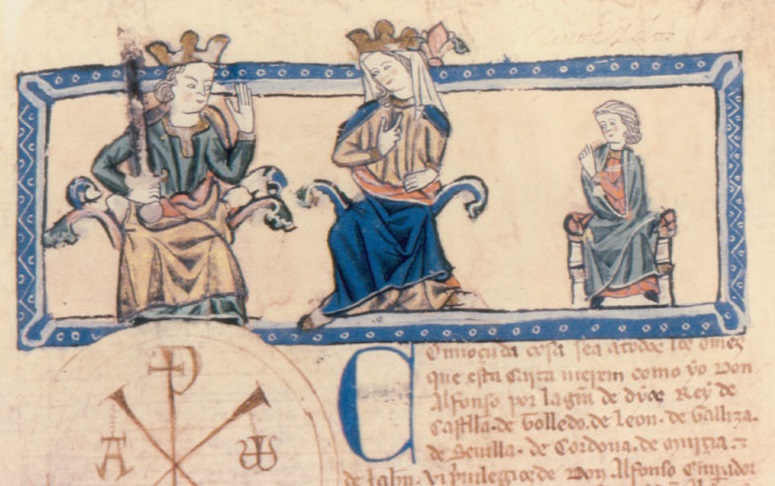 P
A ω
Connoçuda cosa sea a todos los omes
que esta Carta uieren como yo Don
Alfonso por la gra de dyos Rey de
Castella. de Tolledo. de Leon. de Gallizia.
de Seuilla. de Cordoua. de Murcia.
de Jahn. vi priuilegio de Don Alfonso Emperador